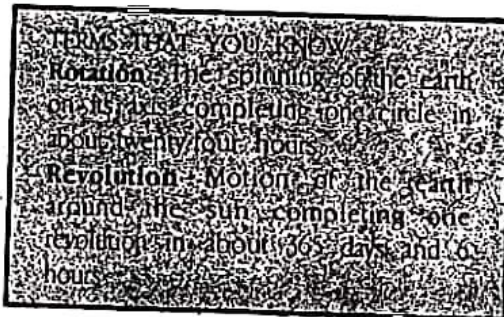 TERMS THAT YOU KNOW
Rotation : The spinning of the earth
on its axis completing one circle in
about twenty four hours
Revolution Motion of the earth
around the sun completing one
revolution in about 365 days and 6
hours